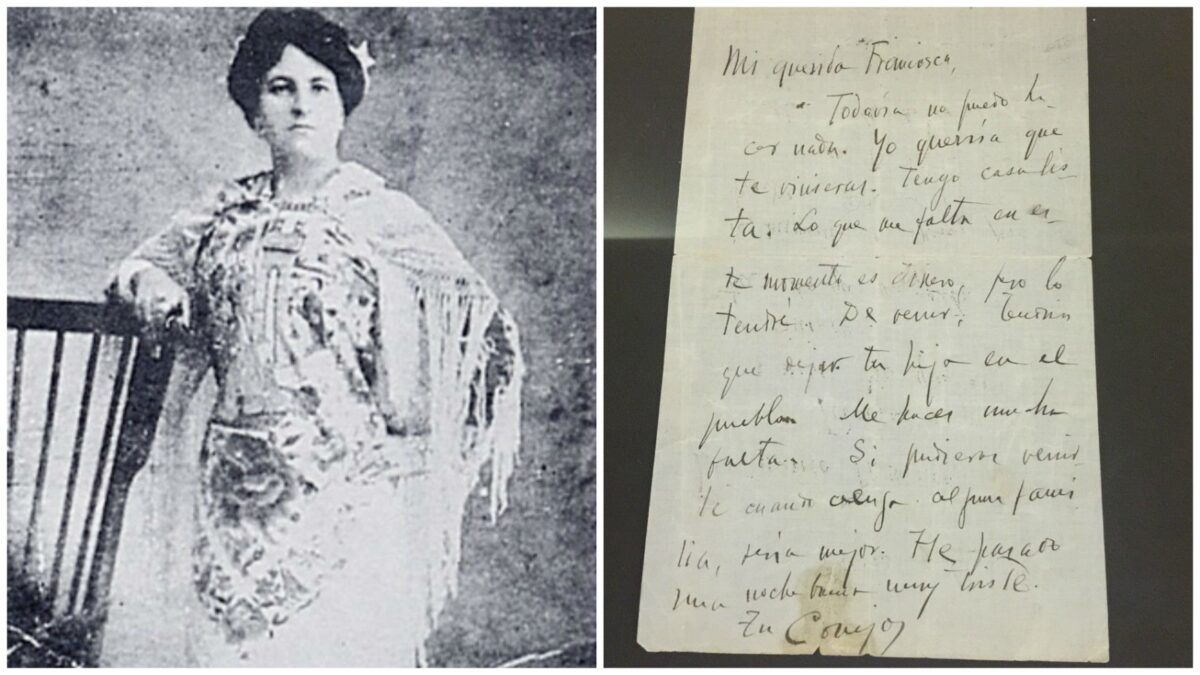 Mi querida Francisca,
Todavía no puedo ha-
cer nada. Yo querría que
te vinieras. Tengo casa lis-
ta. Lo que me falta en es-
te momento es dinero, pero lo
tendré. De venir, tendrías
que dejar tu hijo en el
pueblo. Me haces mucha
falta. Si pudieras venir-
te cuando venga alguna fami-
lia, sería mejor. He pasado
una noche buena muy triste.
Tu Conejo